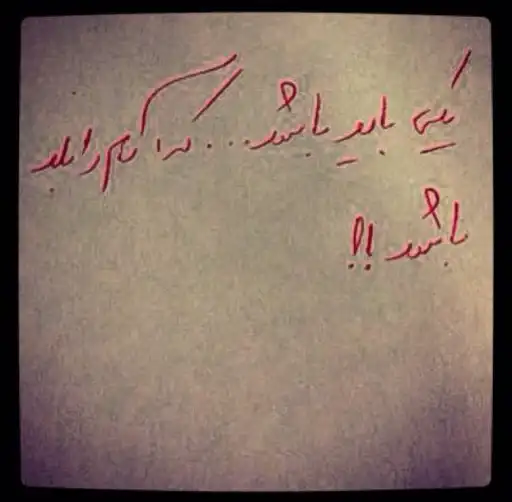 یکی باید باشد... که آدم را بلد
باشد !!